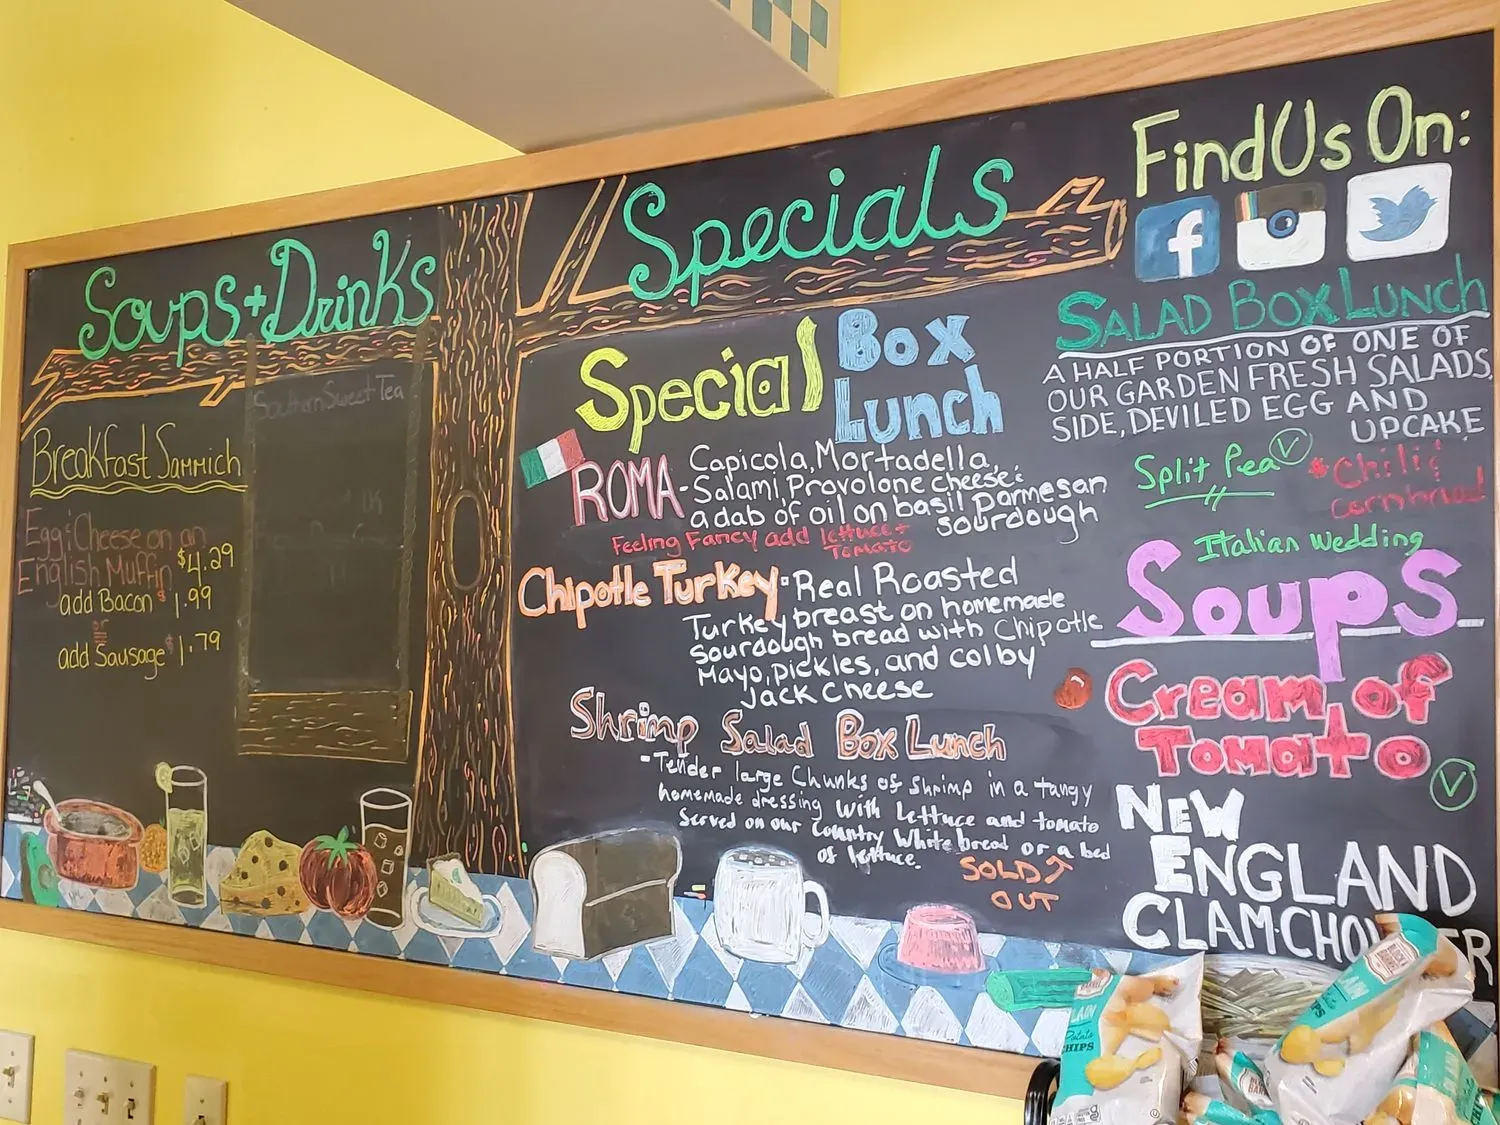 Soups + Drinks
Breakfast Sammich
Egg & Cheese on an
English Muffin $4.29
add Bacon $1.99
or
add Sausage $1.79
Southern Sweet Tea
Specials
Special Box
Lunch
ROMA - Capicola, Mortadella,
Salami, Provolone cheese &
a dab of oil on basil parmesan
sourdough
Feeling Fancy add lettuce +
Tomato
Chipotle Turkey - Real Roasted
Turkey breast on homemade
sourdough bread with Chipotle
Mayo, pickles, and colby
Jack cheese
Shrimp Salad Box Lunch
- Tender large chunks of shrimp in a tangy
homemade dressing with lettuce and tomato
Served on our country white bread or a bed
of lettuce.
SOLD
OUT
Find Us On:
f
SALAD BOX LUNCH
A HALF PORTION OF ONE OF
OUR GARDEN FRESH SALADS,
SIDE, DEVILED EGG AND
UPCAKE
Split Pea V
Chili &
Cornbread
Italian Wedding
Soups
Cream of
Tomato
V
NEW
ENGLAND
CLAM CHO ER
Potato
CHIPS